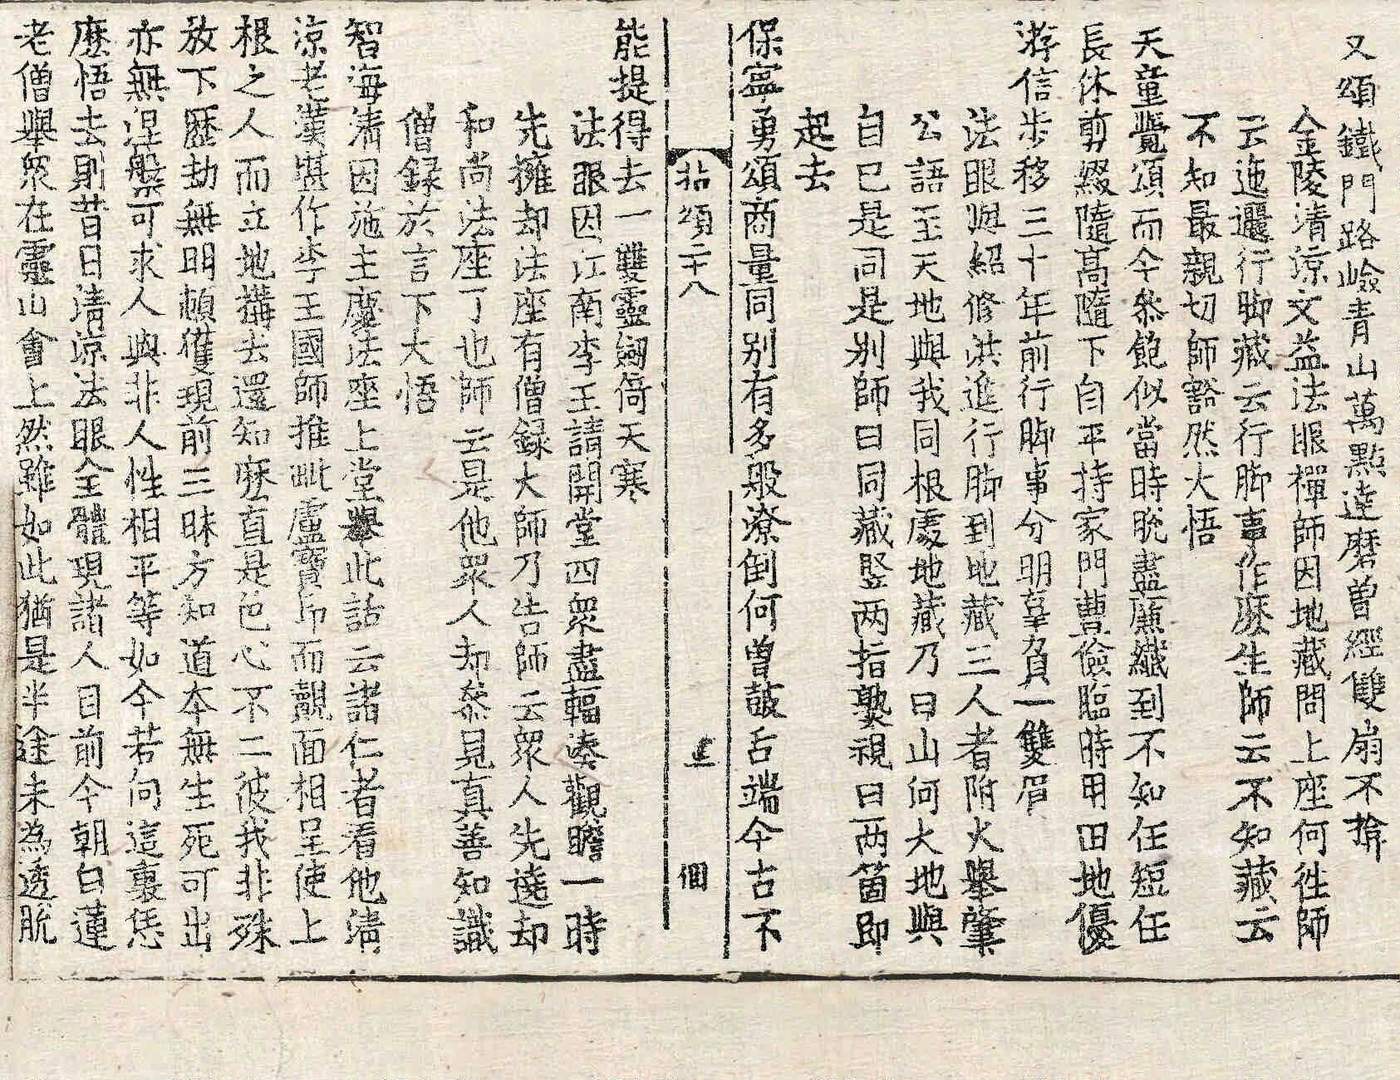 又頌鐵門路嶮青山萬點達磨曽經雙扇不揜
金陵清涼文益法眼禪師因地藏問上座何徃師
云迤邐行脚藏云行脚事作麽生師云不知藏云
不知最親切師豁然大悟
天童覺頌而今叅飽似當時脫盡廉纖到不知任短任
長休剪綴隨髙隨下自平持家門豊儉臨時用田地優
游信步移三十年前行脚事分明辜負一雙眉
法眼與紹修洪進行脚到地藏三人者附火舉肇
公語至天地與我同根處地藏乃曰山何大地與
自已是同是别師曰同藏竪两指熟視曰两箇即
起去
保寧勇頌商量同别有多般潦倒何曾鼓舌端今古不
拈頌二十八
𠁅
個
能提得去一雙靈劒倚天寒
法眼因江南李王請開堂四衆盡輻湊觀瞻一時
先擁却法座有僧録大師乃告師云衆人先遶却
和尚法座了也師云是他衆人却叅見真善知識
僧録於言下大悟
智海清因施主慶法座上堂舉此話云諸仁者看他清
涼老漢堪作李王國師推毗盧寶印而覿面相呈使上
根之人而立地搆去還知麽直是色心不二彼我非殊
放下歷劫無明頓獲現前三昧方知道本無生死可出
亦無涅盤可求人與非人性相平等如今若向這裏恁
麽悟去則昔日清涼法眼全體現諸人目前今朝白蓮
老僧舉衆在靈山會上然雖如此猶是半途未為透脫